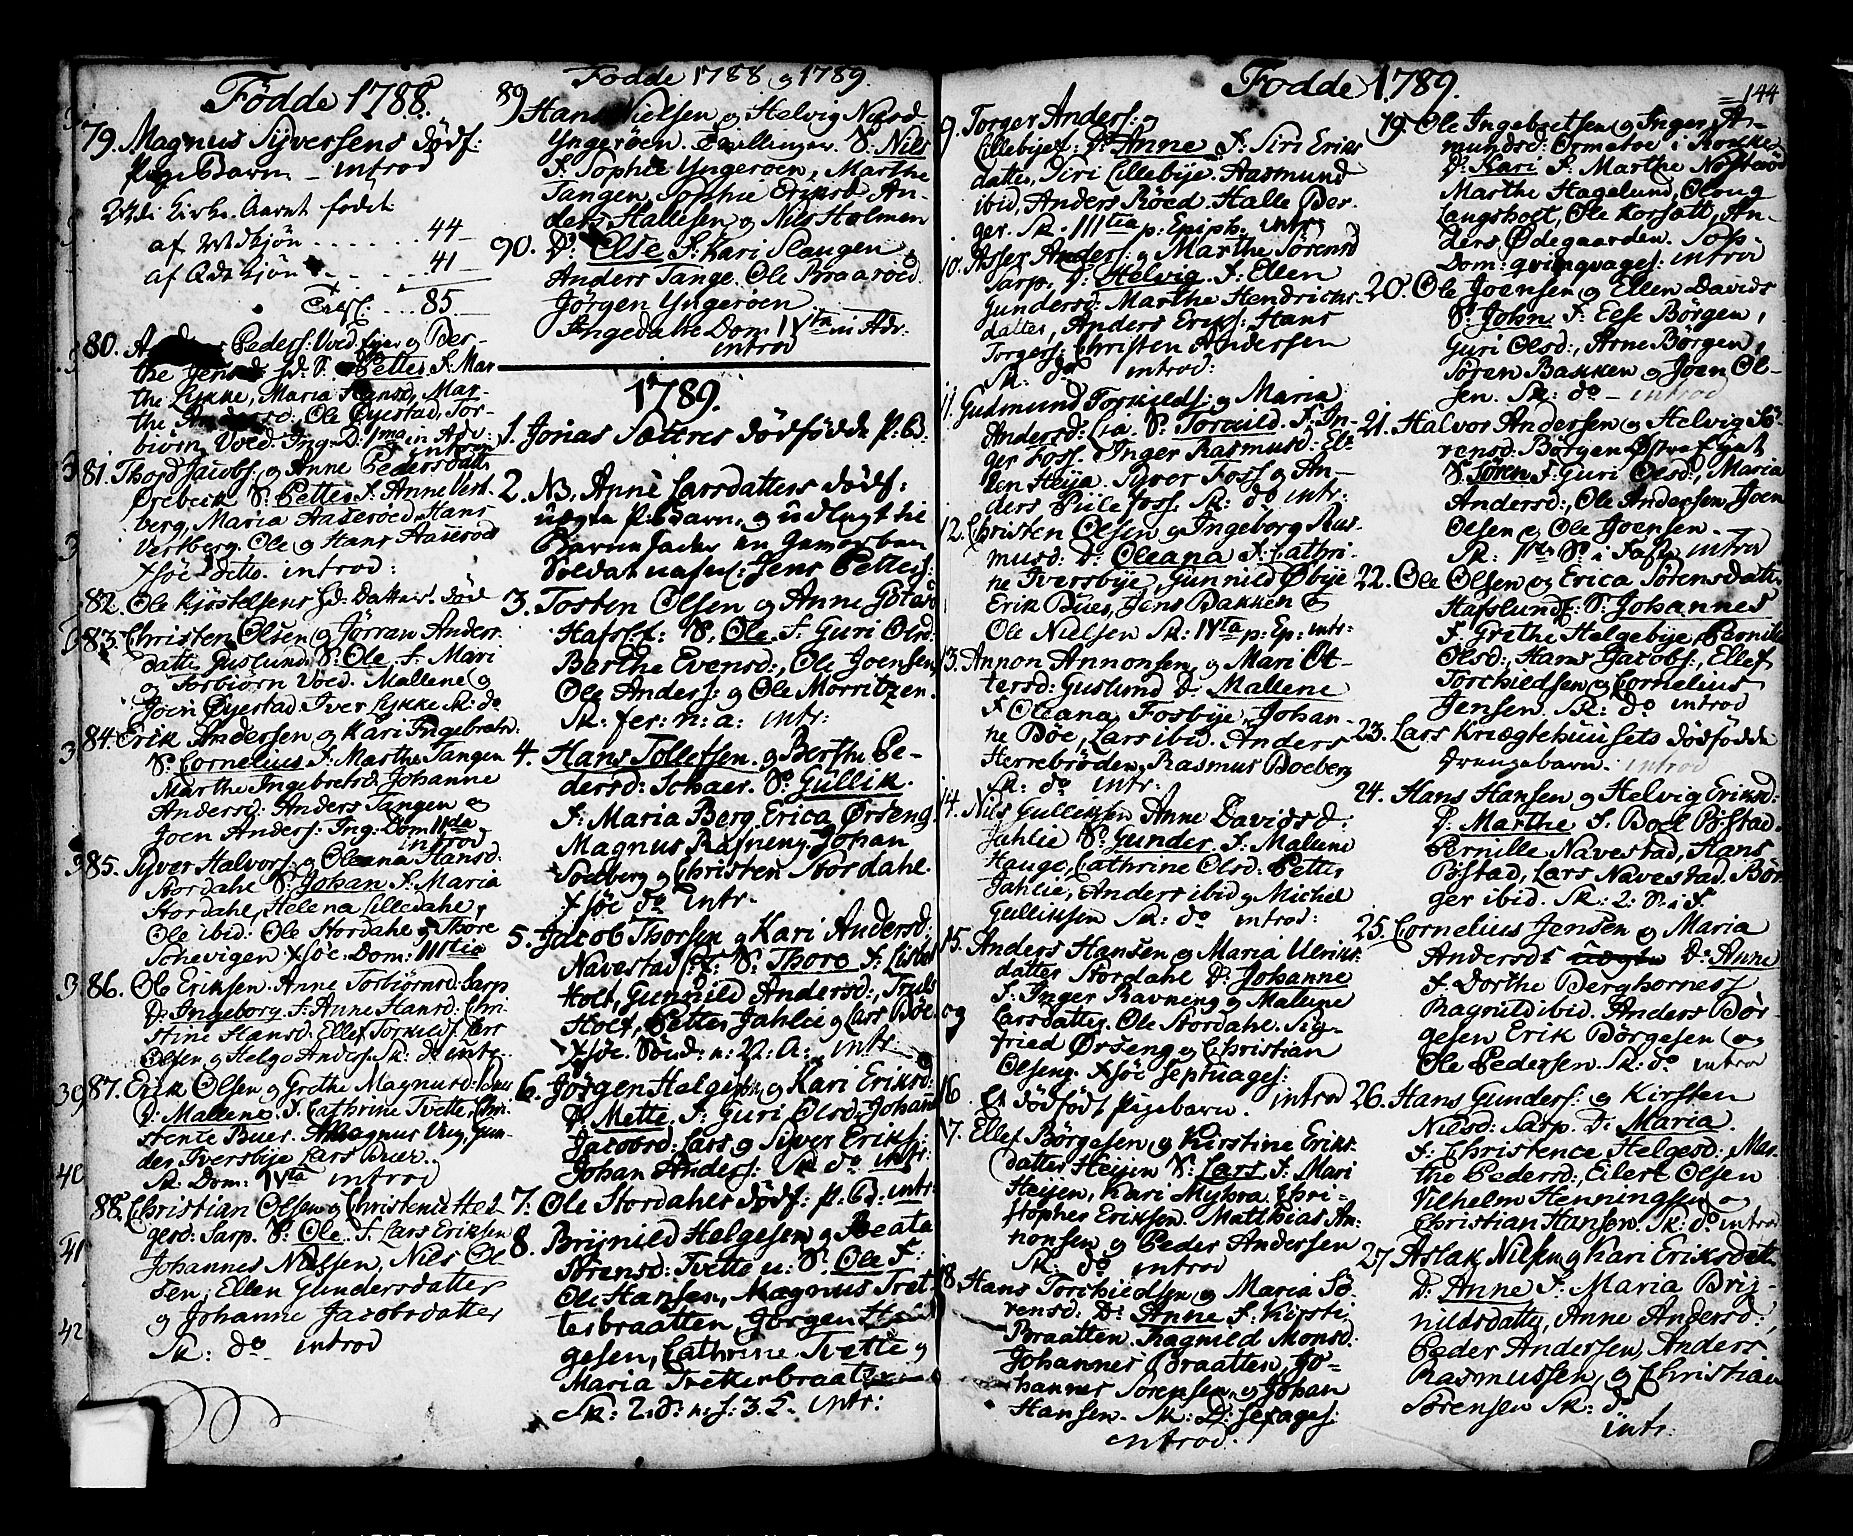 Födde 1788.
79. Magnus Syversens dödf:
PigeBarn - introd
af Mdkjön ...... 44
af Qdekjön ...... 41
85
80. Peders: Voed og Ber-
the Jensd S. Petter F. Mar-
the Lykke, Maria Hansd, Mar-
the Andersd. Ole Øyestad, Tor-
biörn Voed. Ing: D: 1ma in Adv:
introd
81. Thord Jacobs: og Anne Pedersdatter
Örebeck S. Petter F. Anne Vest
berg, Maria Aaseröed, Hans
Vestberg. Ole og Hans Aaseröd
Xsöe ditto. introd:
82. Ole Kjöstelsens Datter död
83. Christen Olsen og Jörran Anders
datter Guslund S: Ole F. Mari
og Torbiörn Voed. Mallene og
Joen Øyestad Iver Lykke Sk: do
84. Erik Andersen og Kari Ingebretsd.
S. Cornelius F. Marthe Tangen
Marthe Ingebretsd. Johanne
Andersd: Anders Tangen og
Joen Anders: Ing: Dom: IIda
introd
85. Syver Halvors: og Oleana Hansd:
Stordahl S. Johan F. Maria
Stordahl, Helena Lilledahl,
Ole ibid: Ole Stordahl og Thore
Schevigen Xsöe: Dom: IIItia
86. Ole Eriksen. Anne Torbiörnsd: Sarp
D. Ingeborg. F. Anne Hansd: Chri-
stine Hansd: Ellef Torkilds: Lars
Olsen og Helge Anders. Sk: do intr.
87. Erik Olsen og Grethe Magnusd: Bues
D. Mallene. F. Cathrine Tvette, Chri-
stente Buer. Magnus Vug, Gun-
der Iversbye Lars Buer.
Sk: Dom: IVta introd
88. Christian Olsen og Christence Hel-
gesd: Sarp. S: Ole. F. Lars Eriksen
Johannes Nielsen, Nils Ol-
sen, Ellen Gundersdatter
og Johanne Jacobsdatter
Sk: do introd
Födde 1788 og 1789.
89. Hans Nielsen og Helvig Nilsd
Yngeröen. Tvillinger. S. Nils
F. Sophie Yngeröen, Marthe
Tangen, Sophie Eriksd An-
ders Hallesen og Nils Holmen
90. D. Else F. Kari Haugen
Anders Tange. Ole Braaröed
Jörgen Yngeröen
Ingedahl Dom IVta in Adv:
introd
1789.
1. Jonas Sætres dödfödde P: B:
2. NB. Anne Larsdatters dödf:
uægte P: Barn, og udlagt til
Barnefader en Gevorben
Soldat Jens Petters:
3. Tosten Olsen og Anne Götasd
Hafslf: S. Ole F. Guri Olsd
Barthe Evensd:, Ole Joensen,
Ole Anders: og Ole Morritzen.
Sk: fer: n: a: intr:
4. Hans Tollefsen og Berthe Pe-
dersd: Schaer. S. Gullik.
F: Maria Berg, Erica Örseng,
Magnus Rafneng, Johan
Soelberg og Christen Stordahl.
Xsöe do intr.
5. Jacob Thorsen og Kari Andersd:
Navestad S: Thore F. Lisbet
Holt, Gunnild Andersd:, Truls
Holt, Petter Jahlie og Lars Böe,
Xsöe. Sönd: n: N. A: intr:
6. Jörgen Helgesen og Kari Eriksd:
D. Mette F: Guri Olsd: Johanne
Jacobsd: Lars og Syver Eriks:
Johan Anders: Sk do intr:
7. Ole Stordahls dödf: P: B: intr:
8. Brijnild Helgesen og Beata
Sörensd: Tvette u: S: Ole F:
Ole Hansen, Magnus Tret-
tesbraatten, Jörgen Hel-
gesen, Cathrine Tvette og
Maria Trekerbraatten
Sk: 2. d: n: f: 3. K. intr:
Födde 1789.
=144
9. Torger Anders: og
Lillebyef: D: Anne F. Siri Eriks
datter, Siri Lillebye. Aasmund
ibid, Anders Röed. Halle Ber-
ger. Sk. IIItia p: Epiph: intr:
10. Asser Anders: og Marthe Sörensd
Sarp, D. Helvig. F. Ellen
Gundersd: Marthe Hendrichs-
datter, Anders Eriks: Hans
Torgers. Christen Andersen
Sk: do introd:
11. Gudmund Torkilds: og Maria
Andersd: Lia. S: Torkild. F. In-
ger Foss. Inger Rasmusd. El-
len Heija. Syvor Foss og An-
ders Piilefoss. Sk: do intr:
12. Christen Olsen og Ingeborg Ras-
musd: D. Oleana F. Cathri-
ne Iversbye, Gunnild Öbye
Erik Bues, Jens Bakken og
Ole Nielsen Sk: IVta p: Ep: intr:
13. Annon Annonsen og Mari Ot-
tersd: Guslund D. Mallene
F Oleana Fosbye. Johan-
ne Böe, Lars ibid. Anders
Herrebröden, Rasmus Boeberg
Sk: do intr:
14. Nils Gulliksen Anne Davidsd:
Jahlie S. Gunder F. Malene
Hauge, Cathrine Olsd: Petter
Jahlie, Anders ibid og Michel
Gulliksen Sk: do introd:
15. Anders Hansen og Maria Ulrics
datter Stordahl D: Johanne
F. Inger Ravneng og Malene
Larsdatter. Ole Stordahl. Sig-
fried Örseng og Christian
Olseng. Xsöe Septuages:
16. Et dödfödt Pigebarn. introd
17. Ellef Börgesen og Kirstine Eriks
datter Heijen S: Lars. F. Mari
Heijen, Kari Myhra. Chri-
stopher Eriksen. Matthias An-
nonsen og Peder Andersen
Sk: do introd
18. Hans Torchildsen og Maria Sö-
rensd: D: Anne F. Kirsti
Braatten. Ragnild Monsd:
Johannes Braatten, Jo-
hannes Sorensen og Johan
Hansen. Sk: D: Sexages:
introd.
19. Ole Ingebretsen og Inger A-
mundsd: Ormeboe i Rokke
D: Kari F. Marthe Nöfteröd
Marthe Hagelund, Oloug
Langsholt, Ole Korsatt, An-
ders Ødegaarden. Sk:
Dom: qvinqvages: introd
20. Ole Joensen og Ellen Davids
S. John F. Else Börgen,
Guri Olsd:, Arne Börgen,
Sören Bakken og Joen Ol-
sen. Sk: do - introd
21. Halvor Andersen og Helvig Sö-
rensd: Börgen Östre
S. Sören F. Guri Olsd:, Maria
Andersd:, Ole Andersen, Joen
Olsen og Ole Joensen.
Sk: 1ste S: i Faste introd
22. Ole Olsen og Erica Sörensdatter
Hafslundf: S: Johannes
F. Grethe Helgebye, Pernille
Olsd:, Hans Jacobs:, Ellef
Torchildsen og Cornelius
Jensen Sk: do introd
23. Lars Krægtehuusets dödfödde
Drengebarn. introd
24. Hans Hansen og Helvig Eriksd:
D: Marthe F. Boel Böstad.
Pernille Navestad, Hans
Böstad, Lars Navestad. Bör-
ger ibid. Sk: 2: S. i F
25. Cornelius Jensen og Maria
Andersd: uægte D: Anne
F Dorthe Berghornes
Ragnild ibid. Anders Bör-
gesen Erik Börgesen og
Ole Pedersen. Sk: do introd
26. Hans Gunders: og Kirsten
Nilsd: Sarp. D: Maria.
F: Christence Helgesd: Mar-
the Pedersd: Eilert Olsen
Vilhelm Henningsen og
Christian Hansen. Sk: do introd
27. Aslak Nilsen og Kari Eriksdatt
D. Anne F. Maria Brij-
nildsdatter, Anne Andersd:,
Peder Andersen, Anders
Rasmussen, og Christian
Sörensen Sk: do
intr: